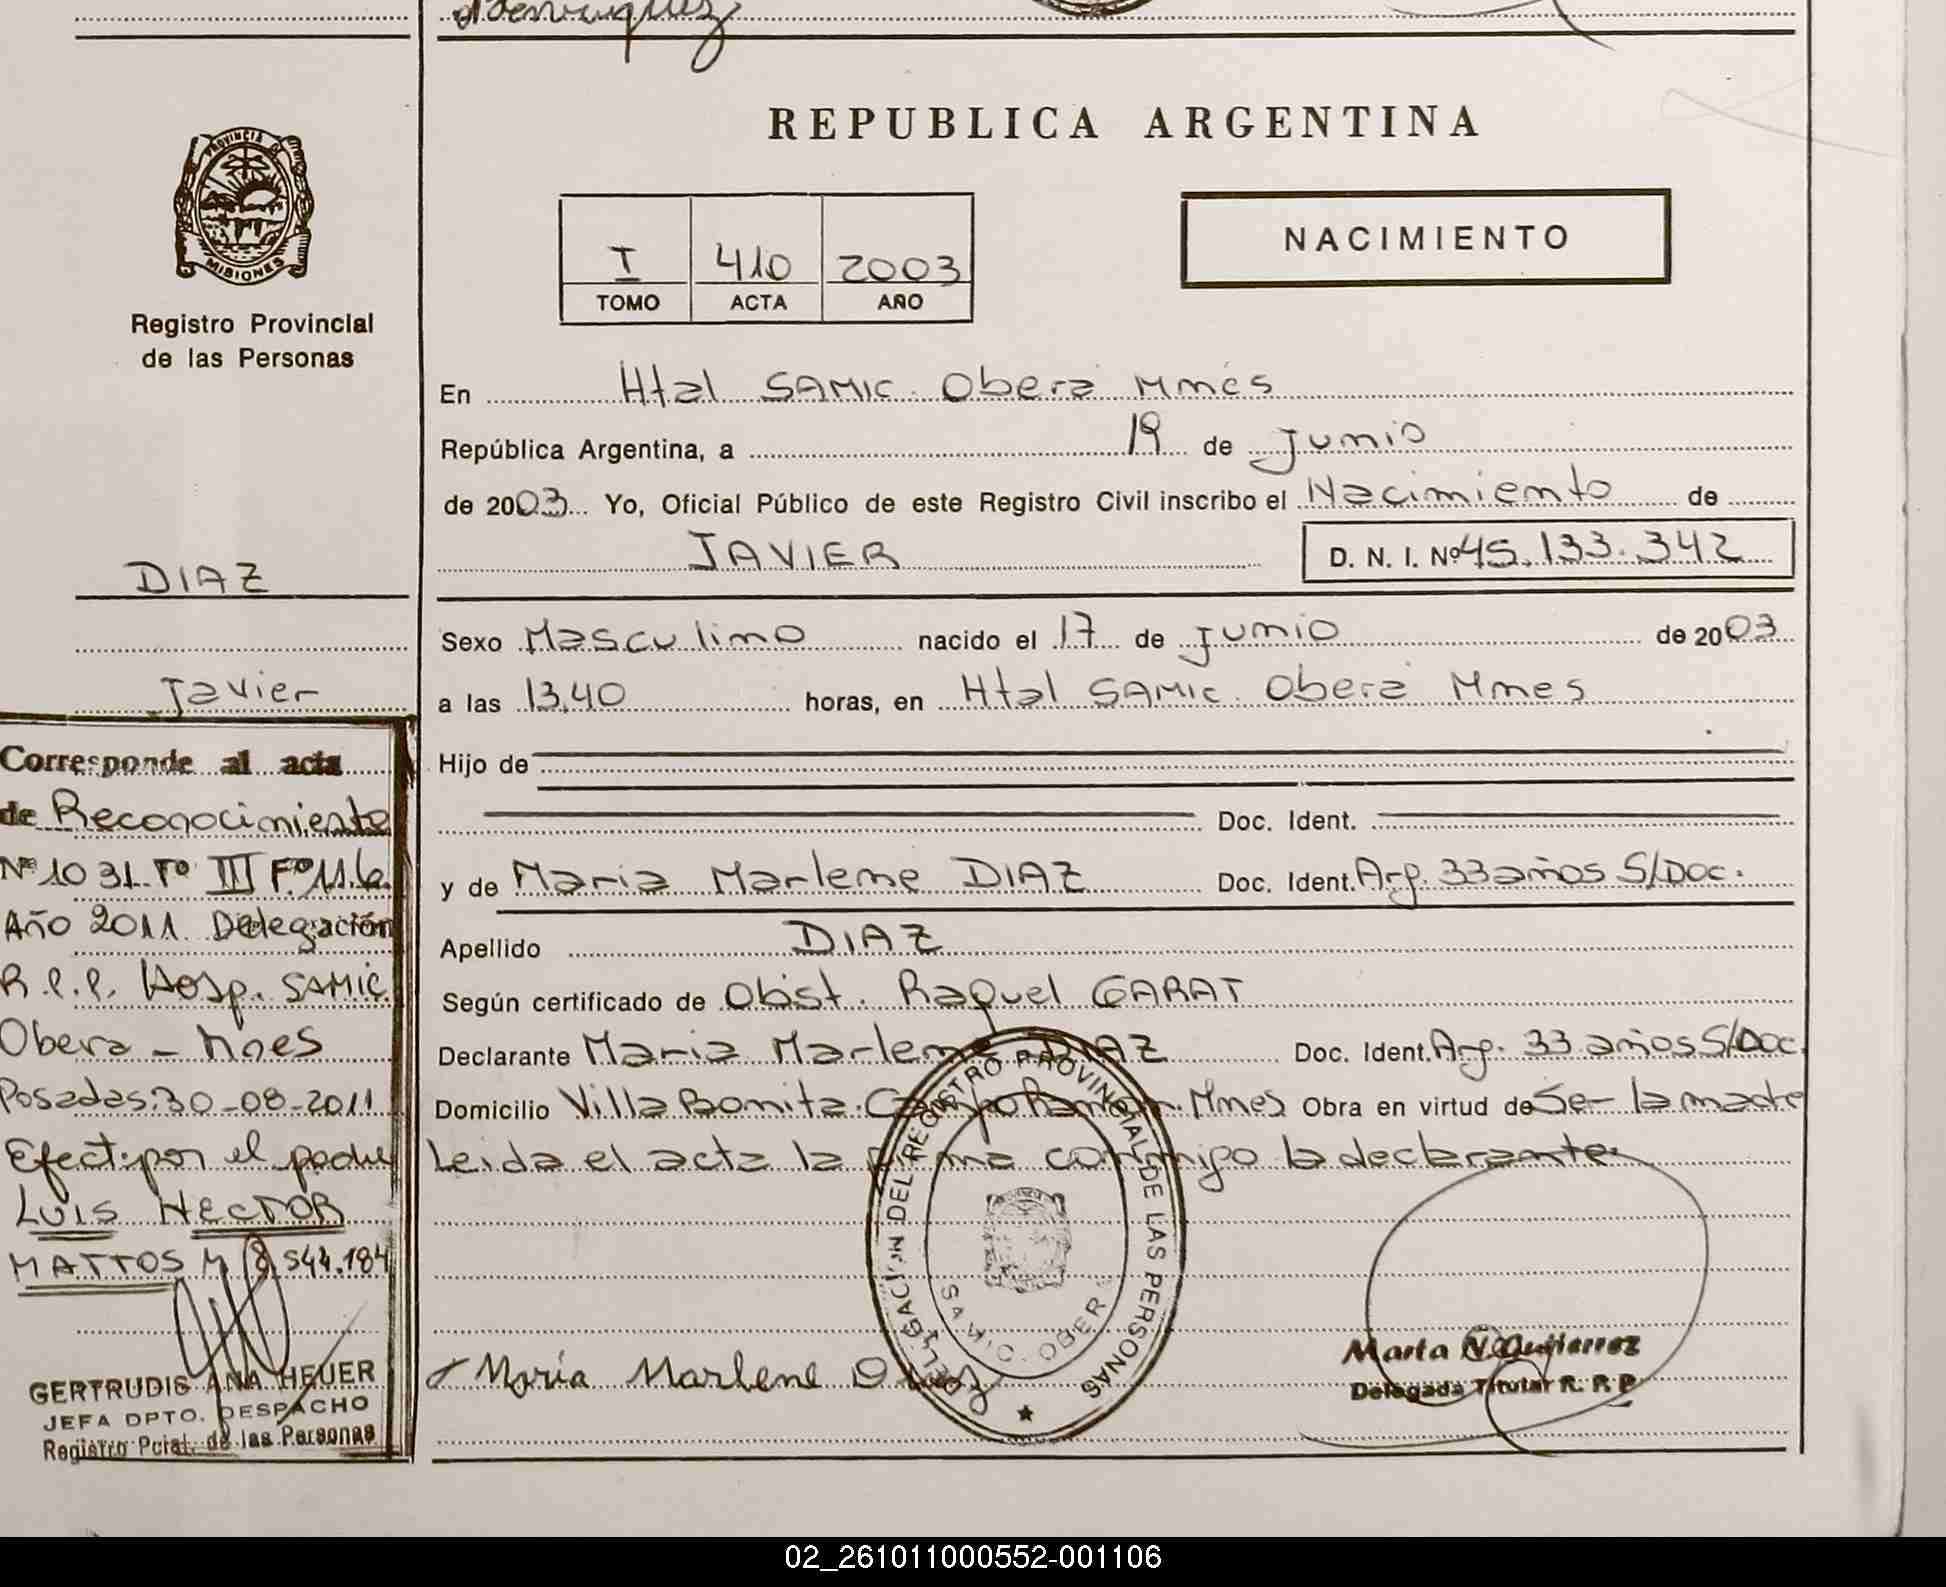 dbenriquez
REPUBLICA ARGENTINA
PROVINCIA DE
MISIONES
Registro Provincial
de las Personas
I 410 2003
TOMO ACTA AÑO
NACIMIENTO
En Htal SAMIC. Oberá Mnes
República Argentina, a 19 de Junio
de 2003 Yo, Oficial Público de este Registro Civil inscribo el Nacimiento de
JAVIER D. N. I. Nº 45.133.342
DIAZ
Javier
Sexo Masculino nacido el 17 de Junio de 2003
a las 13,40 horas, en Htal SAMIC. Oberá Mnes
Hijo de
Doc. Ident.
y de Maria Marlene DIAZ Doc. Ident. Arg. 33 años S/Doc.
Apellido DIAZ
Según certificado de Obst. Raquel GARAT
Declarante Maria Marlene DIAZ Doc. Ident. Arg. 33 años S/Doc.
Domicilio Villa Bonita. Campo Ramon. Mnes Obra en virtud de Ser la madre
Leida el acta la firma conmigo la declarante.
Corresponde al acta
de Reconocimiento
Nº 1031 Tº III Fº 116
Año 2011 Delegación
R.P.P. Hosp. SAMIC
Obera - Mnes
Posadas: 30-08-2011
Efect. por el padre
LUIS HECTOR
MATTOS M 8.544.184
GERTRUDIS ANA HEUER
JEFA DPTO. DESPACHO
Registro Pcial. de las Personas
DELEGACION DEL REGISTRO PROVINCIAL DE LAS PERSONAS
SAMIC. OBER
Maria Marlene Diaz
Marta V. Gutierrez
Delegada Titular R. P. P.
02_261011000552-001106